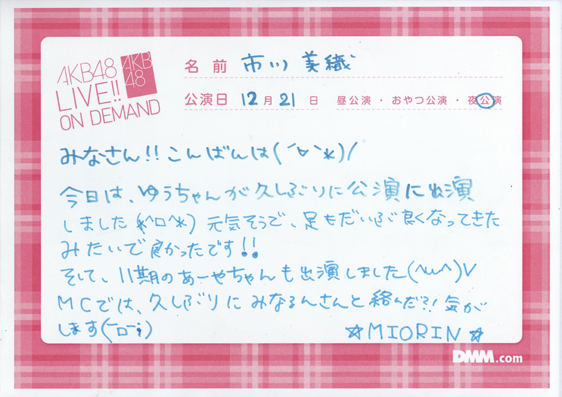 AKB48
LIVE!!
ON DEMAND
AKB
48
名前 市川美織
公演日 12月21日 昼公演・おやつ公演・夜公演
みなさん!!こんばんは(*´∀`*)/
今日は、ゆうちゃんが久しぶりに公演に出演
しました(*^□^*) 元気そうで、足もだいぶ良くなってきた
みたいで良かったです!!
そして、11期のあーやちゃんも出演しました(^ω^)V
MCでは、久しぶりにみなるんさんと絡んだ?!気が
します(￣□￣;)
☆MIORIN☆
DMM.com